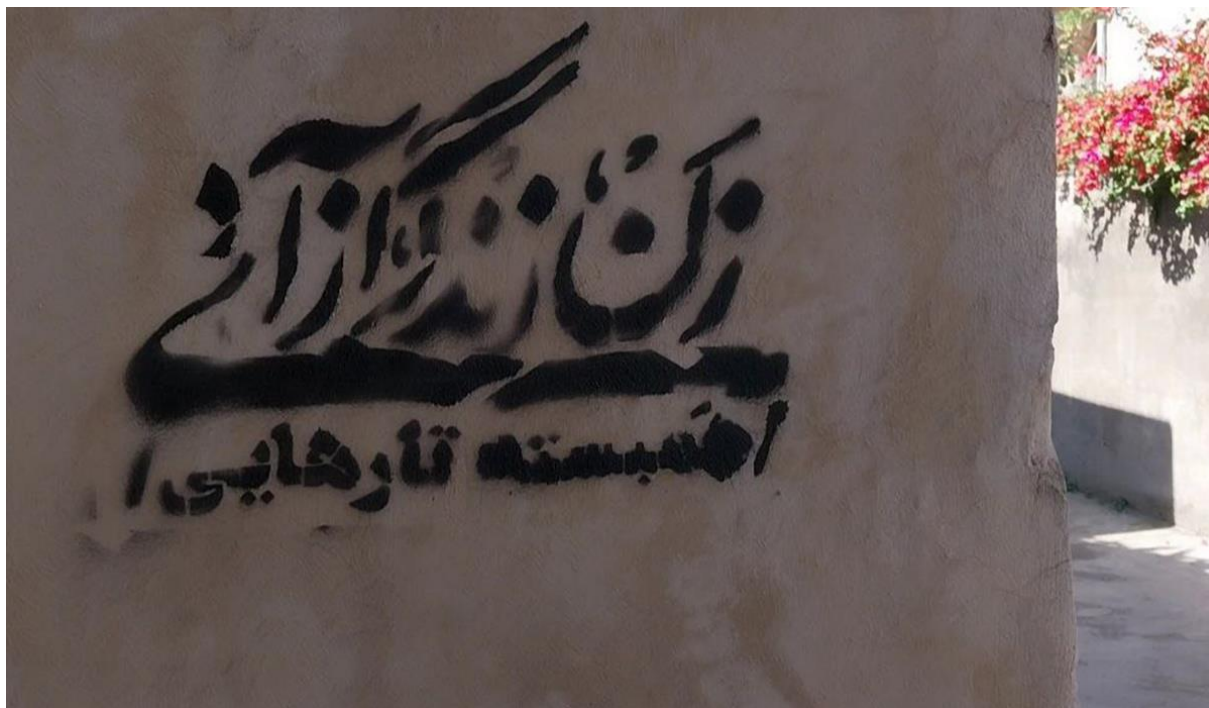 زن، زندگی، آزادی
/ همبسته تا رهایی /